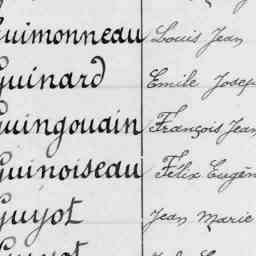 Guimonneau Louis Jean
Guinard Emile Josep
Guingoudin François Jean
Guinoiseau Félix Eugèn
Guyot Jean Marie
Guyot